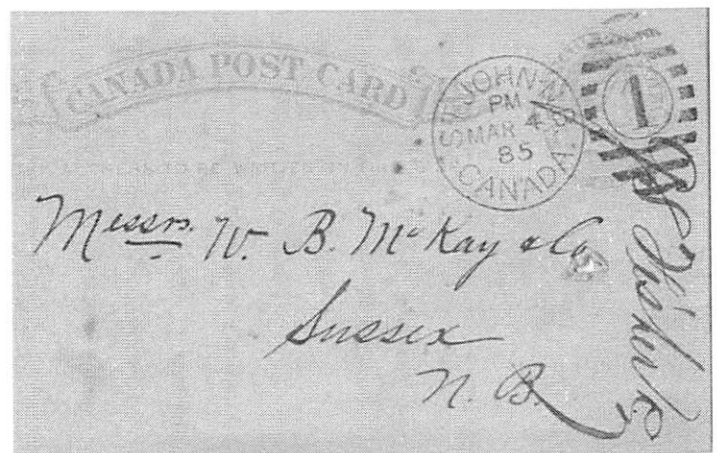 CANADA POST CARD
ST. JOHN N.B.
PM
MAR 4
85
CANADA
1
Messrs. W. B. McKay & Co
Sussex
N. B.